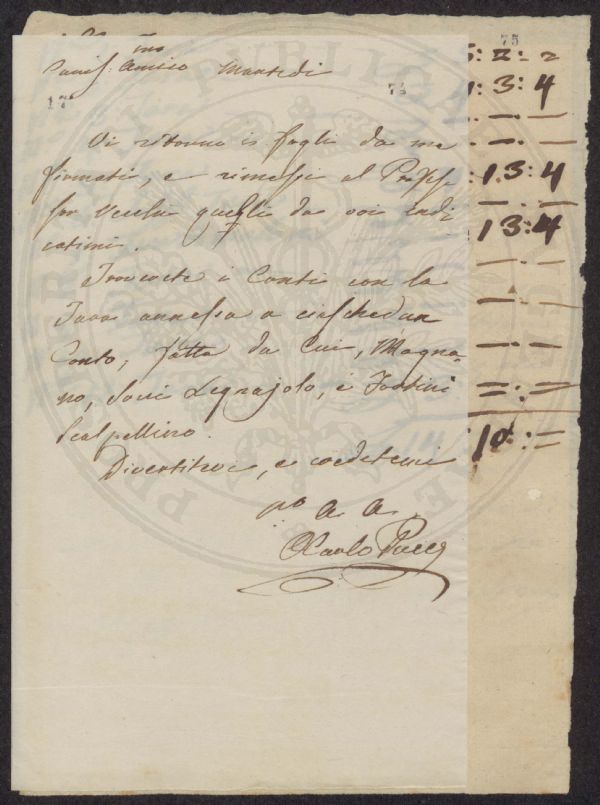 Cariss.mo Amico Martedì
75
17
74
Vi ritorno i fogli da me
firmati, e rimessi al Profes-
sor Vecchi quegli da voi indi
catimi.
i Conti con la
Tara annessa a ciaschedun
Conto, fatta da Cui, Magna-
no, Legnajolo, e Fortini
Scalpellino.
Divertitevi, e credetemi
A A
Paolo Pucci
: 3: 4
: 1.3: 4
13: 4